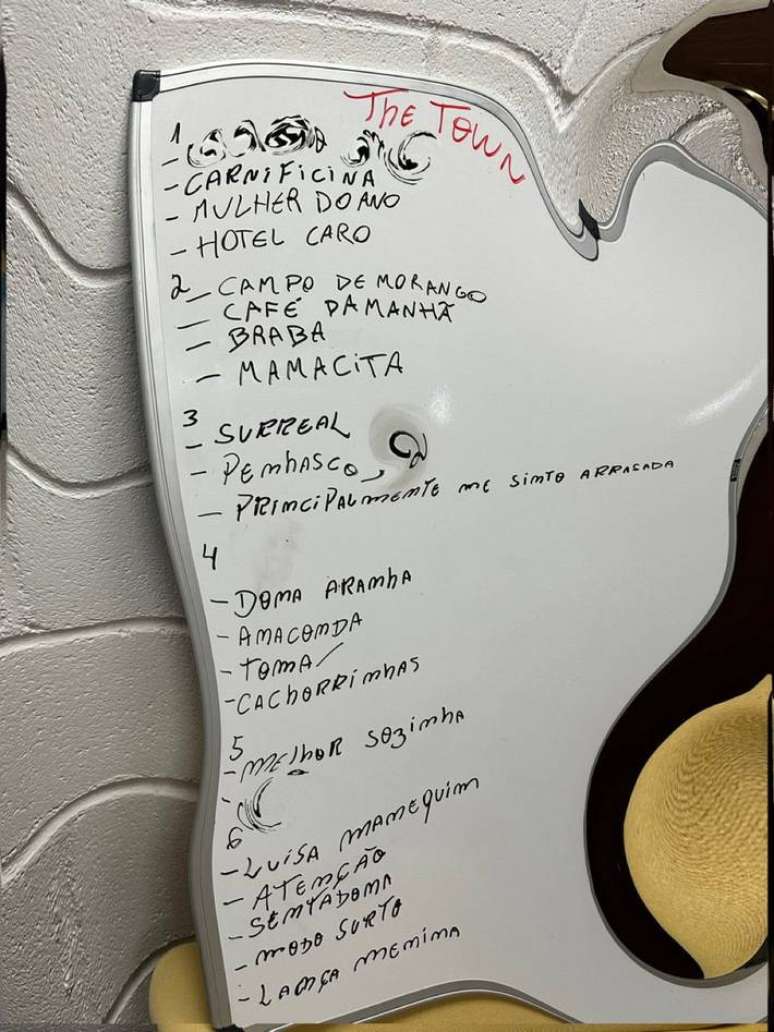 THE TOWN
1
-
- CARNIFICINA
- MULHER DO ANO
- HOTEL CARO
2 - CAMPO DE MORANGO
- CAFÉ DA MANHÃ
- BRABA
- MAMACITA
3
- SURREAL
- PENHASCO
- PRINCIPALMENTE ME SINTO ARRASADA
4
- DONA ARANHA
- ANACONDA
- TOMA
- CACHORRINHAS
5
- MELHOR SOZINHA
-
6
- LUISA MANEQUIM
- ATENÇÃO
- SENTADONA
- MODO SURTO
- LANÇA MENINA